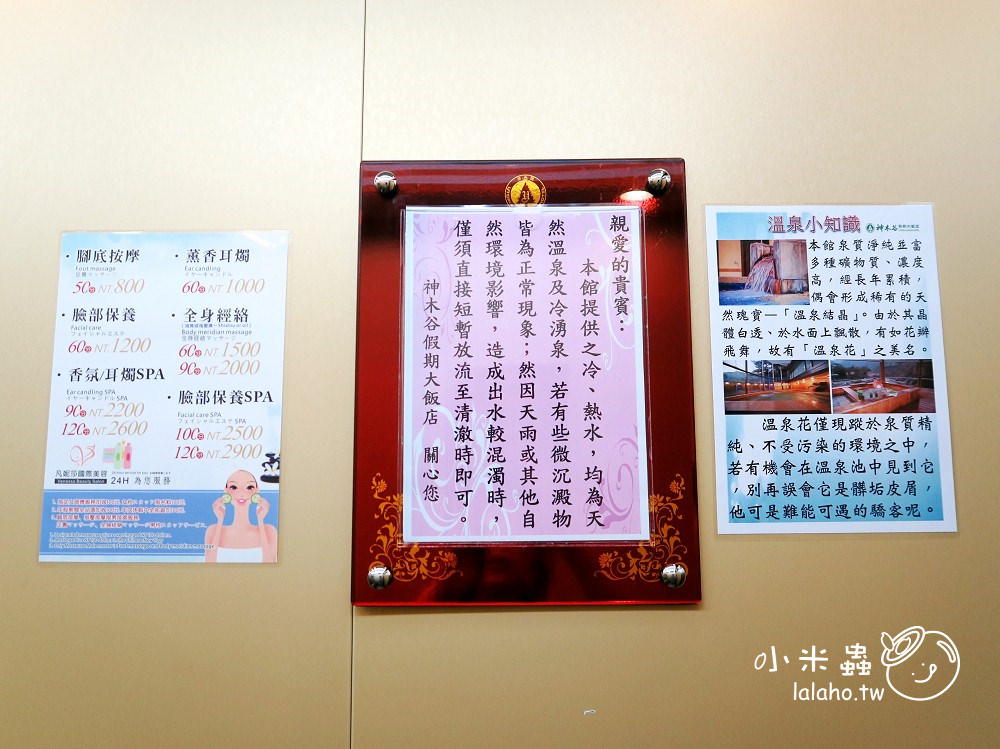 ・腳底按摩
Foot massage
足裏マッサージ
50分 NT.800
・薰香耳燭
Ear candling
イヤーキャンドル
60分 NT.1000
・臉部保養
Facial care
フェイシャルエステ
60分 NT.1200
・全身經絡
Body meridian massage
全身経絡マッサージ
60分 NT.1500
90分 NT.2000
・香氛/耳燭SPA
Ear candling SPA
イヤーキャンドル SPA
90分 NT.2200
120分 NT.2600
・臉部保養SPA
Facial care SPA
フェイシャルエステ SPA
100分 NT.2500
120分 NT.2900
凡妮莎國際美容
Vanessa Beauty Salon
24H 為您服務
親愛的貴賓：
本館提供之冷、熱水，均為天
然溫泉及冷湧泉，若有些微沉澱物
皆為正常現象；然因天雨或其他自
然環境影響，造成出水較混濁時，
僅須直接短暫放流至清澈時即可。
神木谷假期大飯店 關心您
溫泉小知識
神木谷
本館泉質淨純並富
多種礦物質、濃度
高，經長年累積，
偶會形成稀有的天
然瑰寶—「溫泉結晶」。由於其晶
體白透、於水面上飄散，有如花瓣
飛舞，故有「溫泉花」之美名。
溫泉花僅現蹤於泉質精
純、不受污染的環境之中，
若有機會在溫泉池中見到它
，別再誤會它是髒垢皮屑，
他可是難能可遇的驕客呢。
小米蟲
lalaho.tw